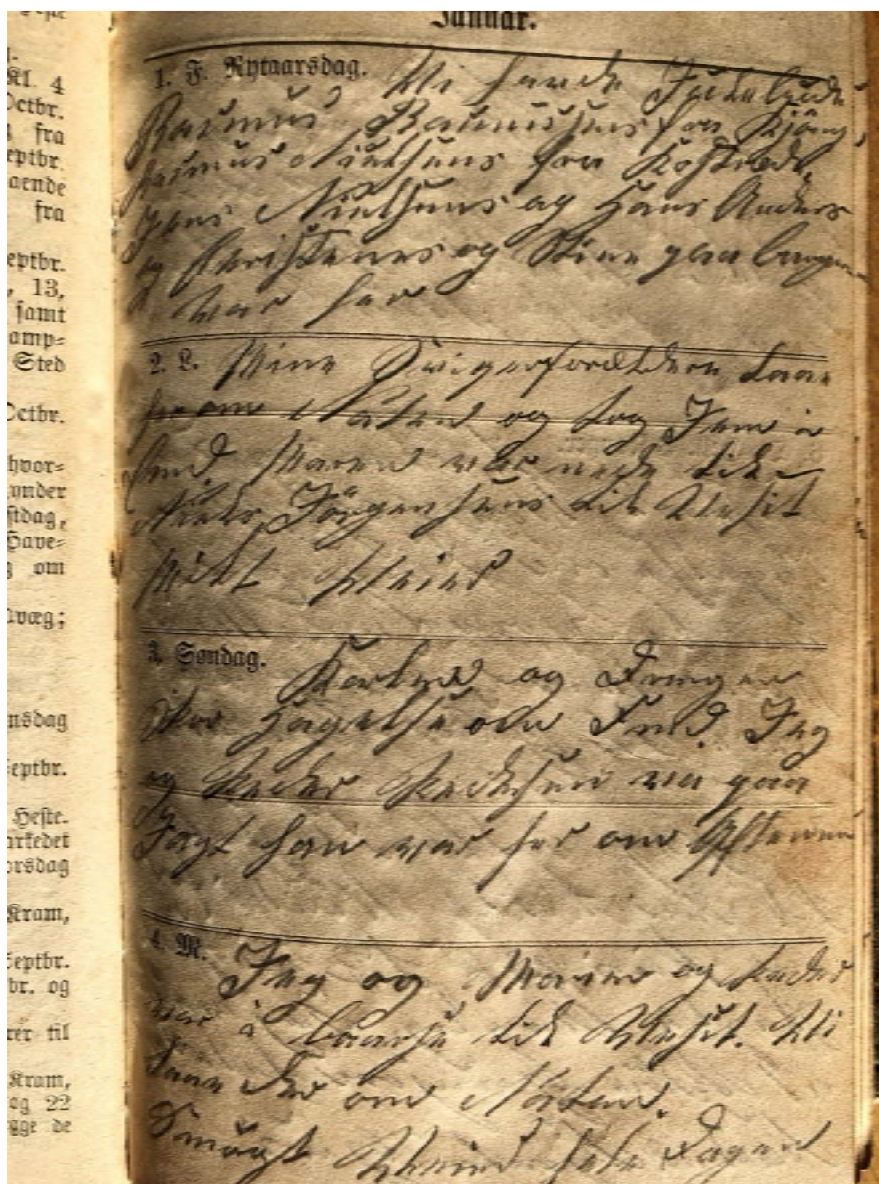 Kl. 4
Octbr.
fra
eptbr.
aaende
fra
eptbr.
, 13,
samt
amp=
Sted
Octbr.
hvor=
ynder
stdag,
Have=
g om
lvæg;
nsdag
eptbr.
Heste.
arkedet
orsdag
Kram,
eptbr.
br. og
rer til
Kram,
og 22
gge de
Januar.
1. F. Nytaarsdag. Vi havde Julebude
Rasmus Rasmussens fra Kjöng,
Rasmus Nielsens fra Kostræde,
Jens Nielsens og Hans Anders
og Christenes og Stine paa
var her
2. L. Mine Svigerforældre laae
her om Natten og tog Jem i
Maren var nede til
Niels Jörgensens til Visit
Mildt Veier
3. Søndag. Karlen og Drengen
skar Hagelse om Jeg
og Peder Pedersen var paa
Jagt han var her om Aftenen
4. M. Jeg og Maren og Peder
var i Baarse til Visit. Vi
laae der om Natten.
Smugt Veier hele Dagen